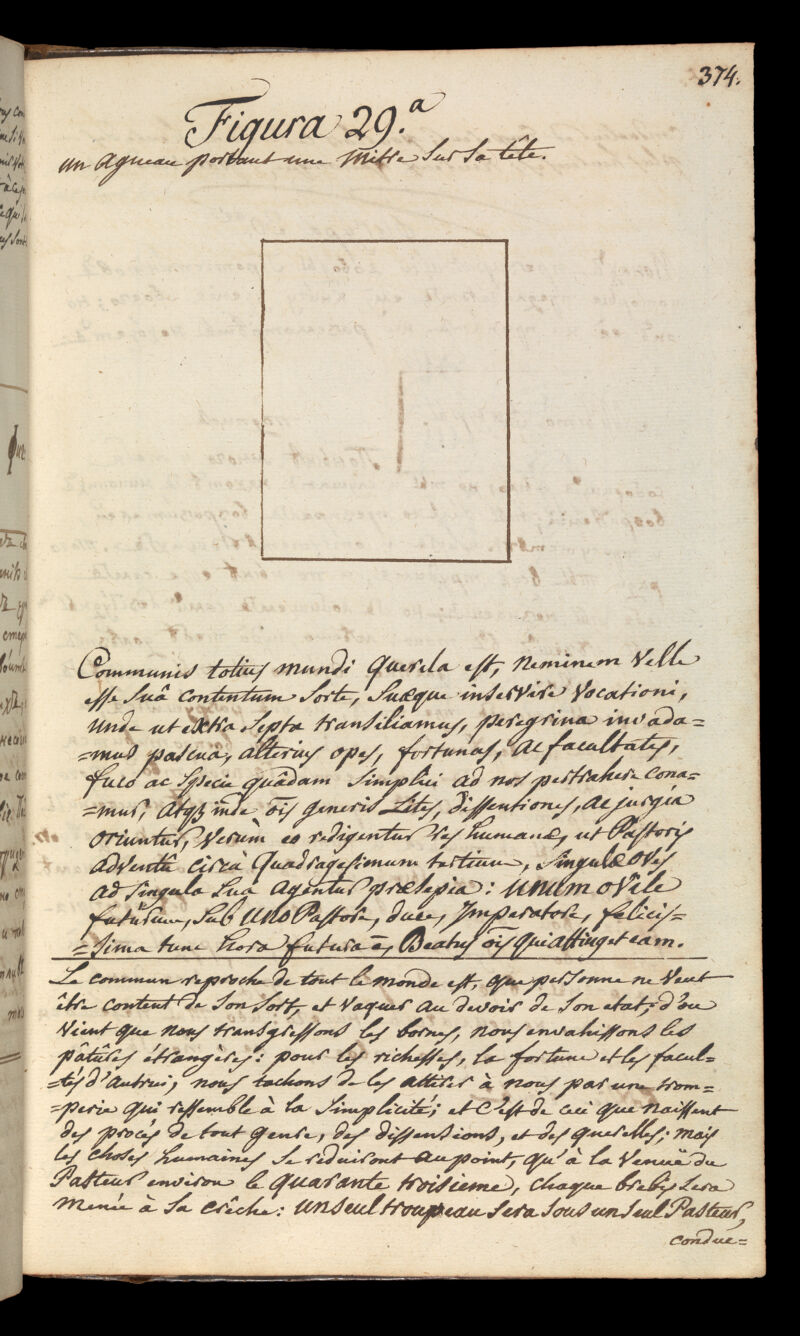 374.
Figura 29.ª
un agneau portant une Mitre sur sa tête.
Communis totius mundi querela est, neminem velle
esse suâ contentum sorte, suæque inservire vocationi,
unde ut extra septa transiliamus, peregrina invada=
=mus pascua, alterius opes, fortunas, ac facultates,
fuco ac specie quâdam simplici ad nos pertrahere cona=
=mur, atqȝ inde ōis generis lites, dissentiones, ac jurgia
oriuntur, verùm eo redigentur res humanæ, ut Pastoris
adventû circà quadragesimum tertium, singulæ oves
ad singula sua agentur præsepia: unum ovile
futurum, sub uno Pastore, duce, Imperatore, felicis=
=sima tunc hora futura ē, Beatus ōis qui attinget eam.
Le commun reproche de tout le monde est, que personne ne veut
être content de son sort, et vaquer au devoir de son etat; d'ou
vient que nous transgressons les bornes, nous envahissons les
pâtûres étrangères: pour les richesses, la fortune et les facul=
=tés d'autrui, nous tachons de les attirer à nous par une trom=
=perie qui ressemble à la simplicité; et c'est de ceci que naissent
des procés de tout genre, des dissensions, et des querelles; mais
les choses humaines se reduiront au point, qu'à la venuë du
Pasteur environ le quarante troisieme, chaque brebis sera
menée à sa crêche: un seul troupeau sera sous un seul Pasteur,
condue=